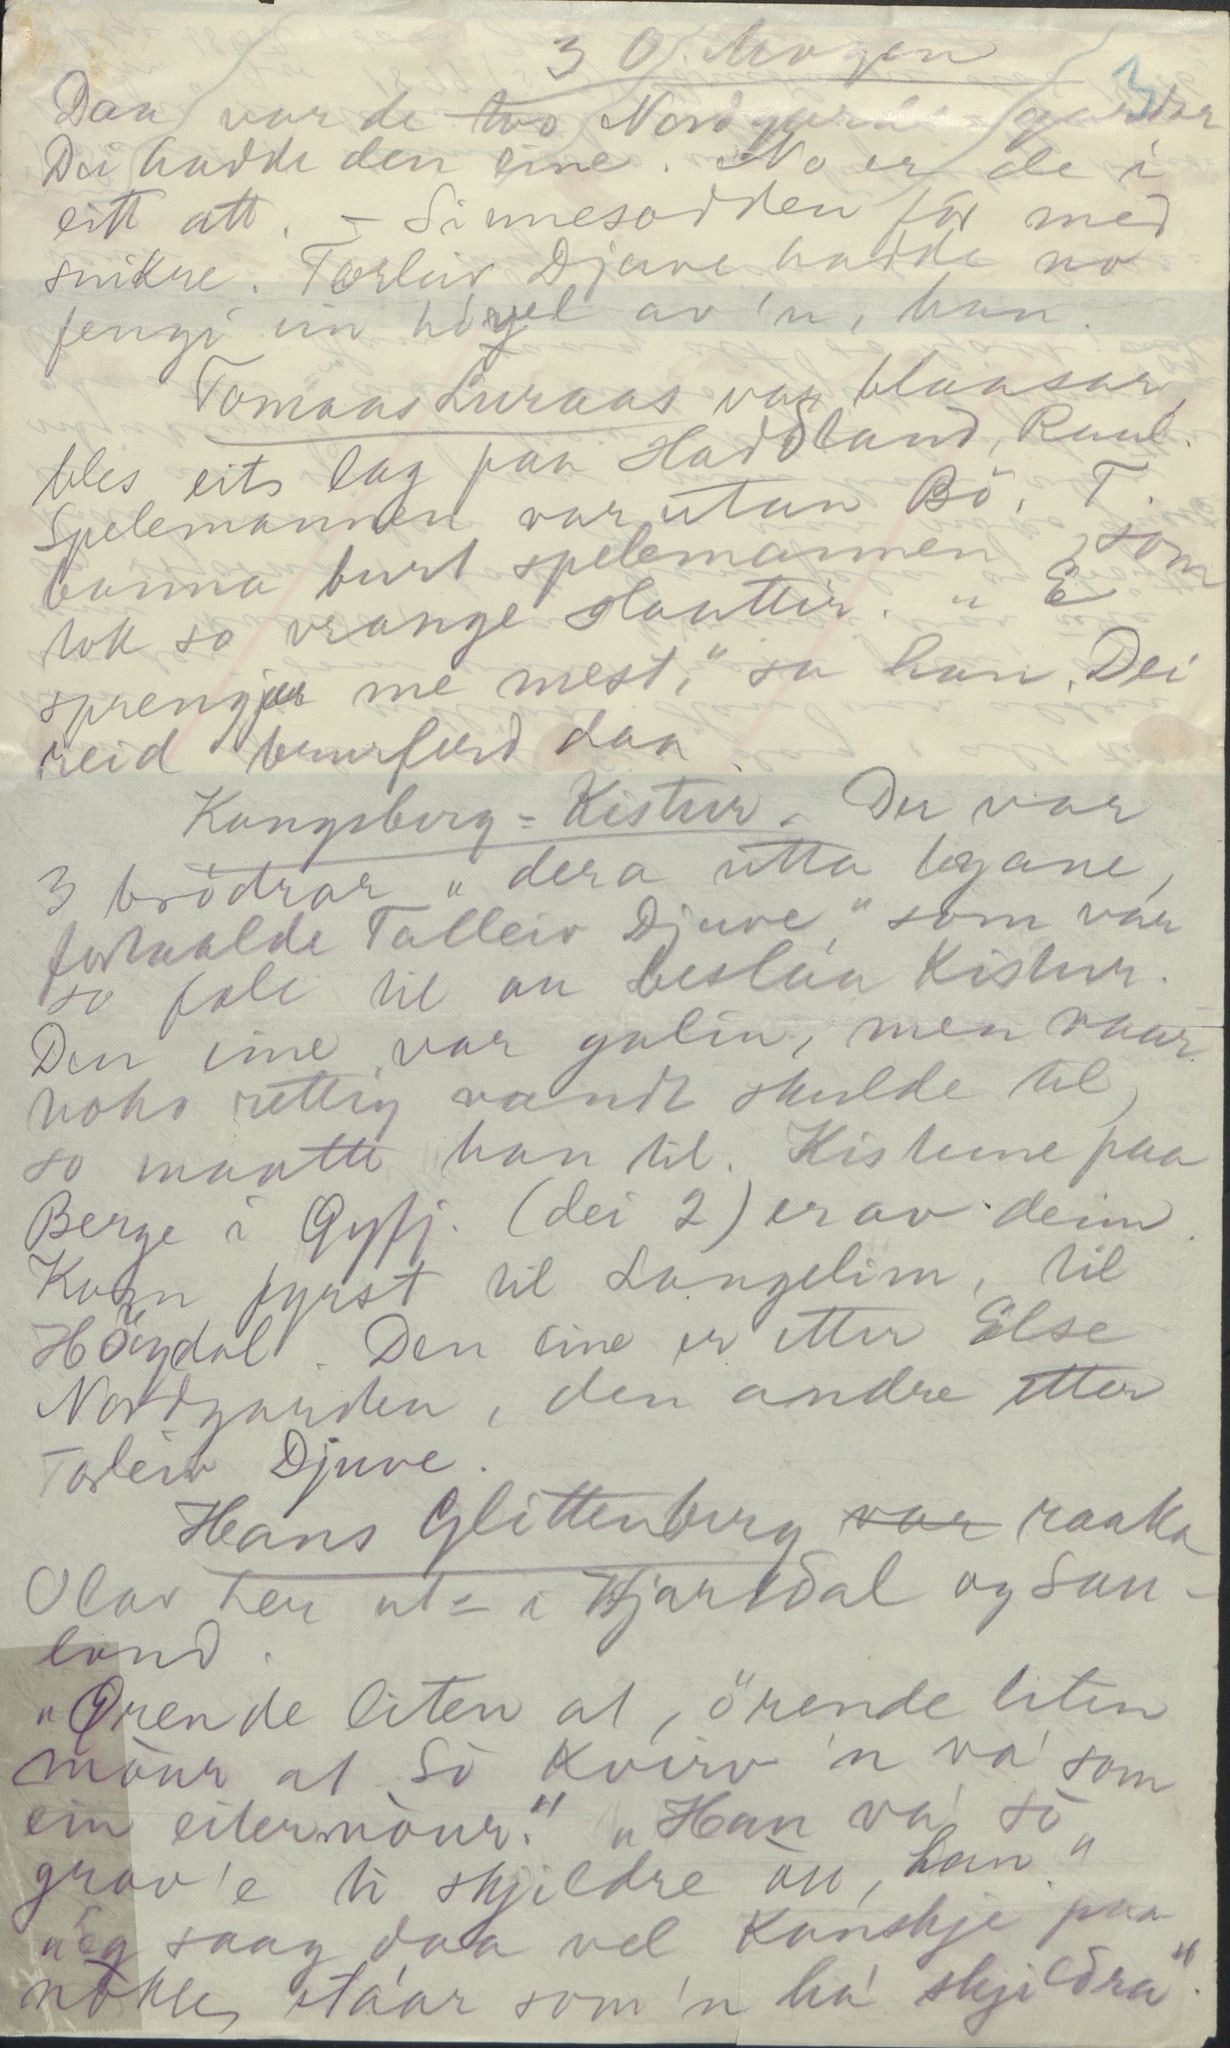 3 O. Mogen
3
Daa var de two Nordgards-gardar
Dei hadde den eine. No er de i
eitt att. - Sinnesodden fór med
snikre. Torleiv Djuve hadde no
fengi ein hövel av 'n, han.
Tomaas Luraas var blaasar,
bles eits lag paa Haddland, Raul.
Spelemannen var utan Bö. T.
banna burt spelemannen som
tok so vrange slaattir. "E
sprengjer me mest," sa han. Dei
reid brurferd daa
Kongsberg-Kistur. Der var
3 brödrar "dera utta byane,
fortaalde Talleiv Djuve," som var
so fale til aa beslaa Kistur.
Den eine var galin, men naar
noko rettig vandt skulde til,
so maatte han til. Kistune paa
Berge i Öyfj. (dei 2) er av deim.
Kom fyrst til Langelim, til
Höydal. Den eine er etter Else
Nordgarden, den andre etter
Torleiv Djuve.
Hans Glittenberg var raaka
Olav her ut- i Hjartdal og Sau-
land.
"Örende liten at, örende liten
mönr at. Só Kvirv 'n va' som
ein eitermónr." "Han va' só
grav'e ti skjildre óu, han"
"Eg saag daa vel Kanskje paa
nokle, itáar som 'n ha' skjildra".